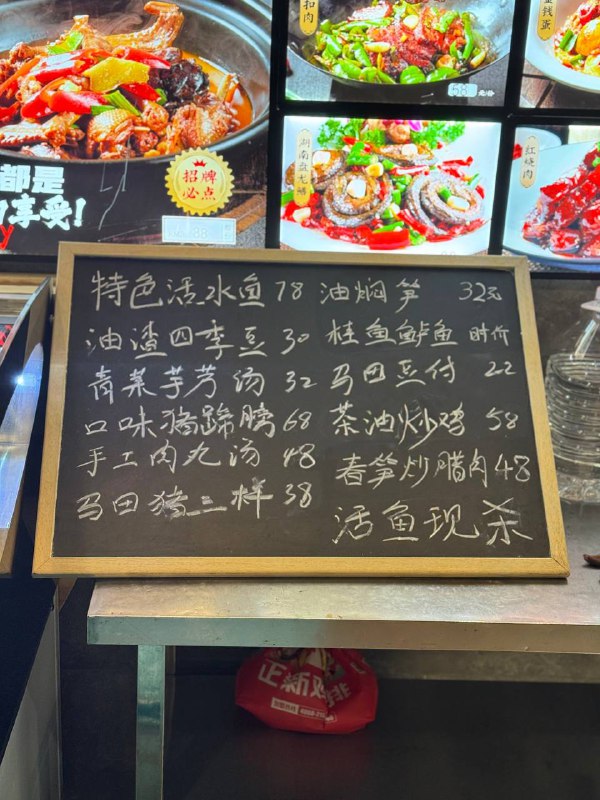 扣肉
58元/份
湖南盘龙鳝
红烧肉
招牌
必点
都是
享受!
特色活水鱼 78
油渣四季豆 30
青菜芋芳汤 32
口味猪蹄膀 68
手工肉丸汤 48
马田猪三样 38
油焖笋 32元
桂鱼鲈鱼 时价
马田豆付 22
茶油炒鸡 58
春笋炒腊肉 48
活鱼现杀
正新鸡排